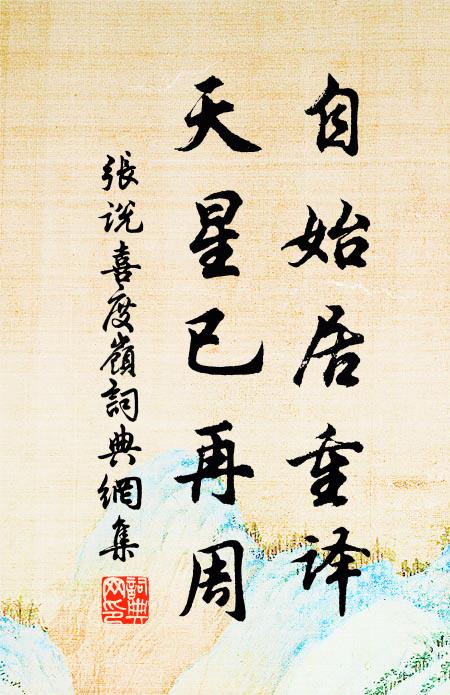 自始居重译
天星已再周
張说喜度嶺詞典網集
詞典网印